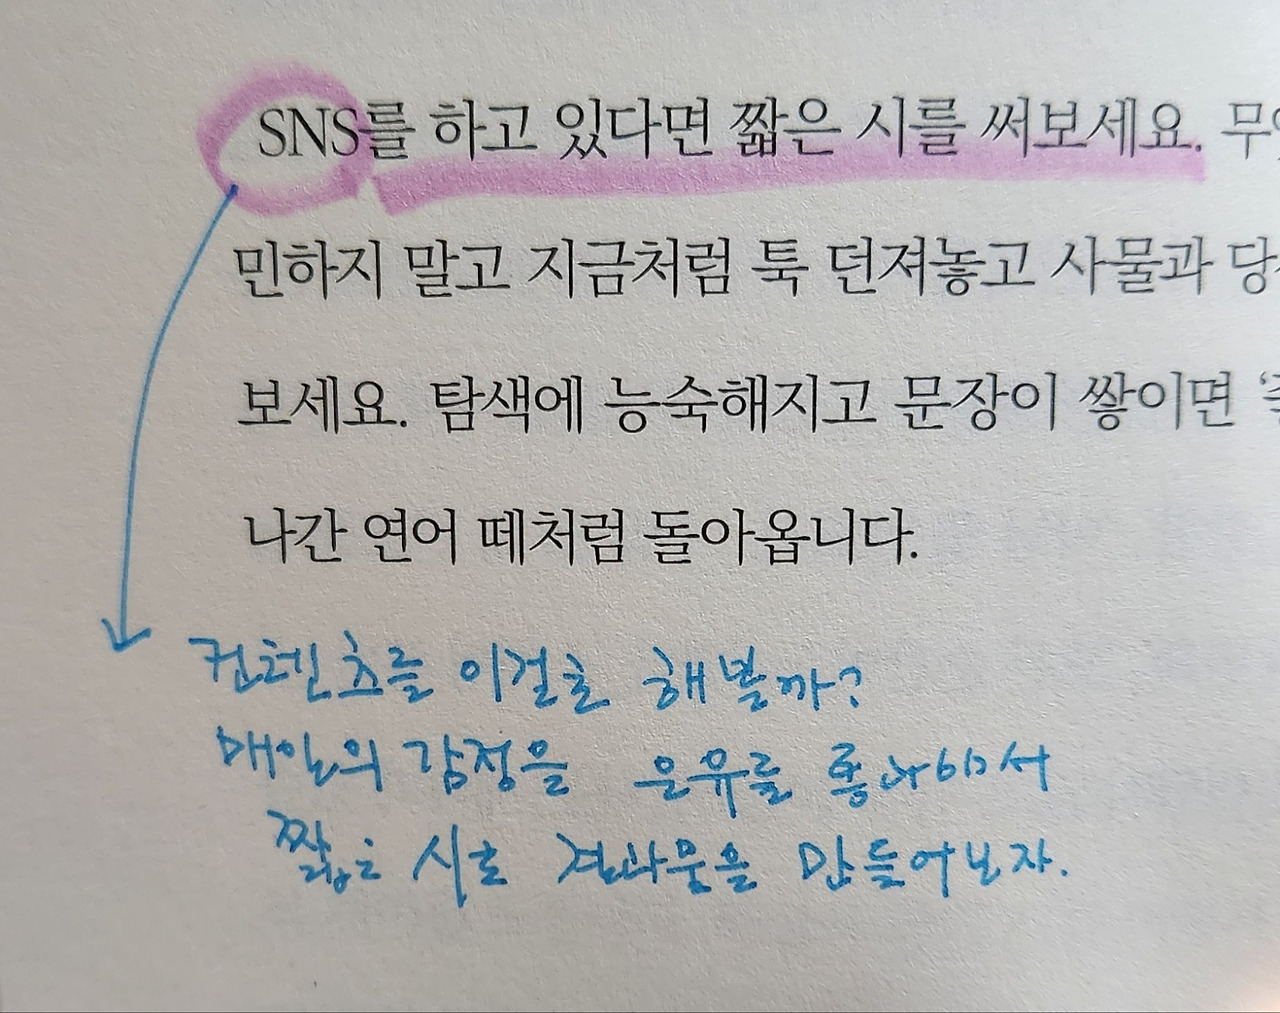 SNS를 하고 있다면 짧은 시를 써보세요.
민하지 말고 지금처럼 툭 던져놓고 사물과
보세요. 탐색에 능숙해지고 문장이 쌓이면
나간 연어 떼처럼 돌아옵니다.
컨텐츠를 이걸로 해볼까?
매일의 감정을 은유를
짧은 시로 결과물을 만들어보자.